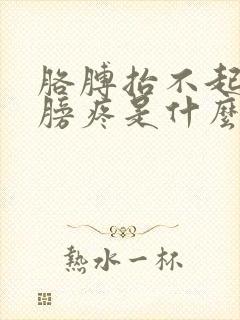 胳膊抬不起
膀疼是什麼
熱水一杯